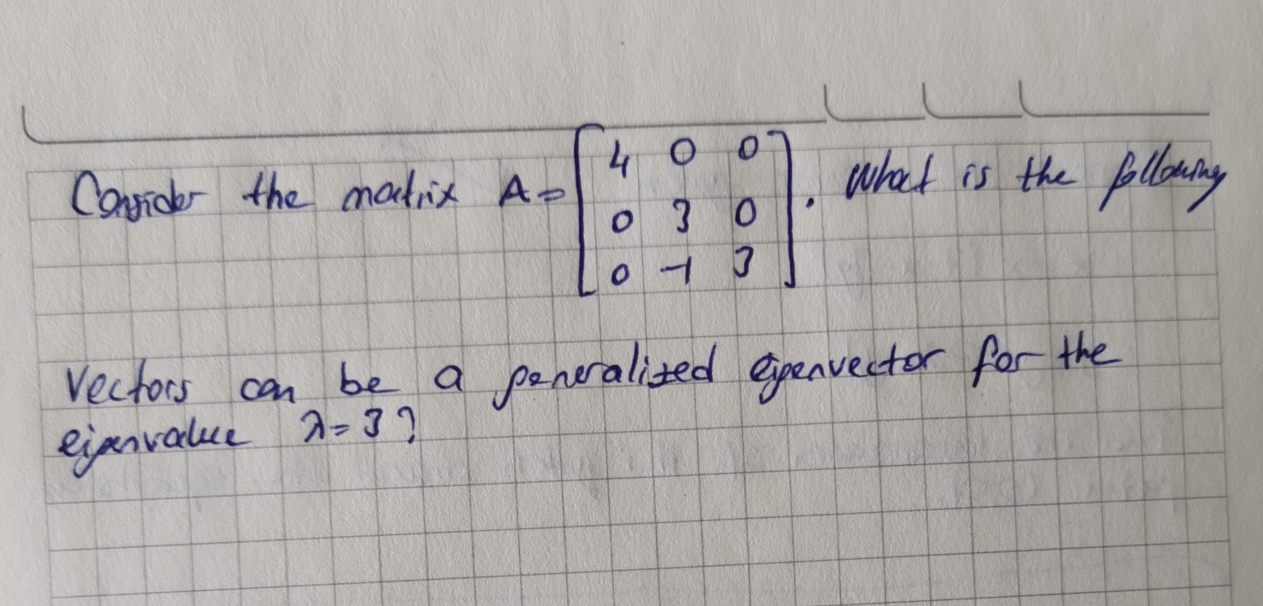 Consider the matrix A = [4 0 0; 0 3 0; 0 -1 3]. What is the following
vectors can be a generalized eigenvector for the
eigenvalue λ = 3?